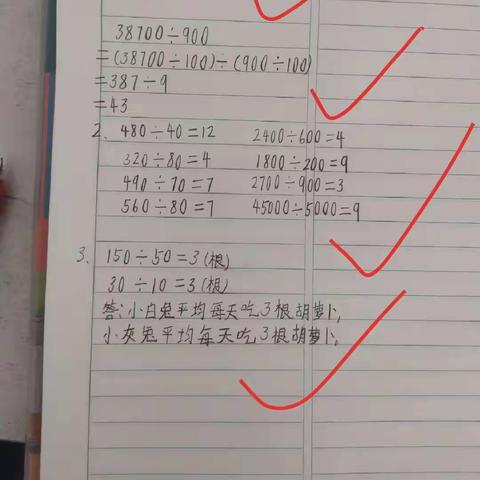 38700÷900
=(38700÷100)÷(900÷100)
=387÷9
=43
2、480÷40=12 2400÷600=4
320÷80=4 1800÷200=9
490÷70=7 2700÷900=3
560÷80=7 45000÷5000=9
3、150÷50=3(根)
30÷10=3(根)
答:小白兔平均每天吃3根胡萝卜,
小灰兔平均每天吃3根胡萝卜,